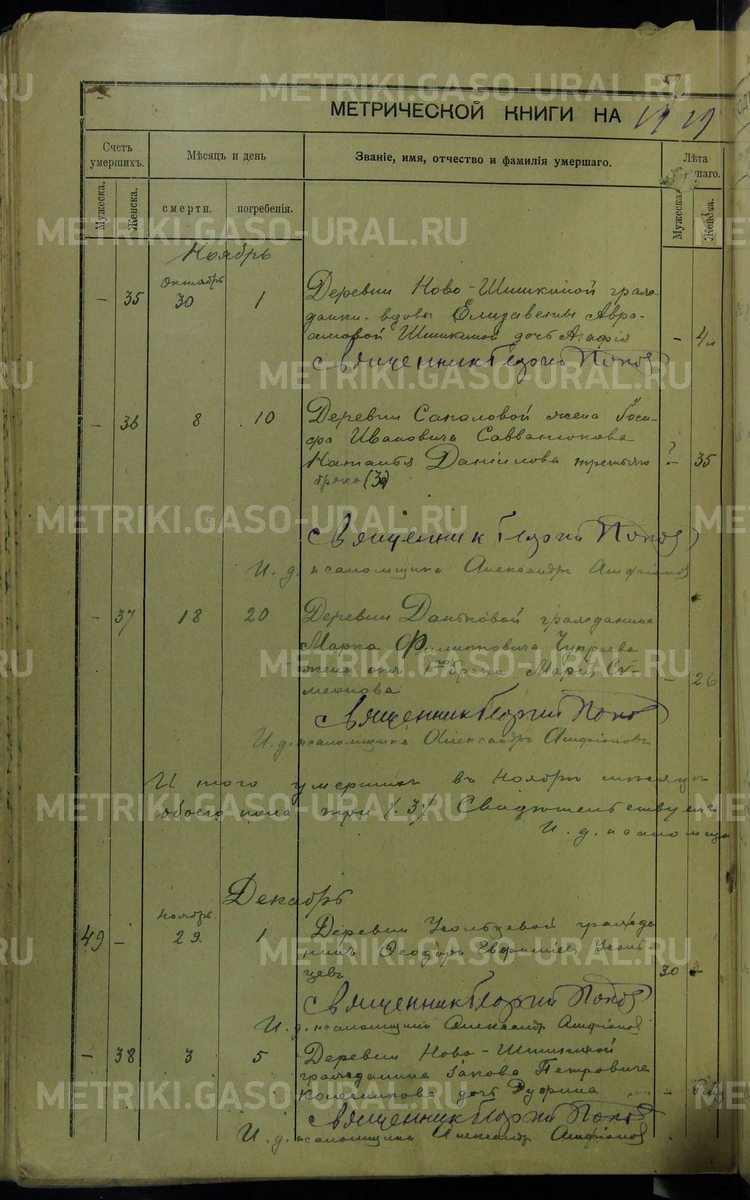 METRIKI.GASO-URAL.RU
МЕТРИЧЕСКОЙ КНИГИ НА 1919
Счетъ умершихъ.
Мѣсяцъ и день
Званіе, имя, отчество и фамилія умершаго.
Лѣта
Мужеска.
Женска.
смерти.
погребенія.
Мужеска
Женска.
Ноябрь
Октябрь
– 35 30 1 Деревни Ново-Шишкиной граж-
данки-вдовы Елизаветы Авра-
амовой Шишкиной дочь Агафія – 4 л
Священник Георгий Попов
– 36 8 10 Деревни Сапаловой жена Іоси-
фа Ивановича Савватиюкова
Наталья Даніилова третьяго ? – 35
брака (3)
Священник Георгий Попов
И. д. псаломщика Александръ Агафоновъ
– 37 18 20 Деревни Даньковой гражданина
Марка Филипповича Чупраева
жена отъ 1го брака Марія Си-
меонова – 26
Священник Георгий Попов
И. д. псаломщика Александръ Агафоновъ
Итого умершихъ въ Ноябрѣ мѣсяцѣ
обоего пола три (3) Свидѣтельствуемъ
И. д. псаломщ
Декабрь
ноябрь
49 – 29 1 Деревни Усольцевой гражда-
нинъ Ѳеодоръ Усоль-
цевъ 30 –
Священник Георгий Попов
И. д. псаломщика Александръ Агафоновъ
– 38 3 5 Деревни Ново-Шишкиной
гражданина Іакова Петровича
Колесникова дочь Руфина –
Священник Георгий Попов
И. д. псаломщика Александръ Агафоновъ